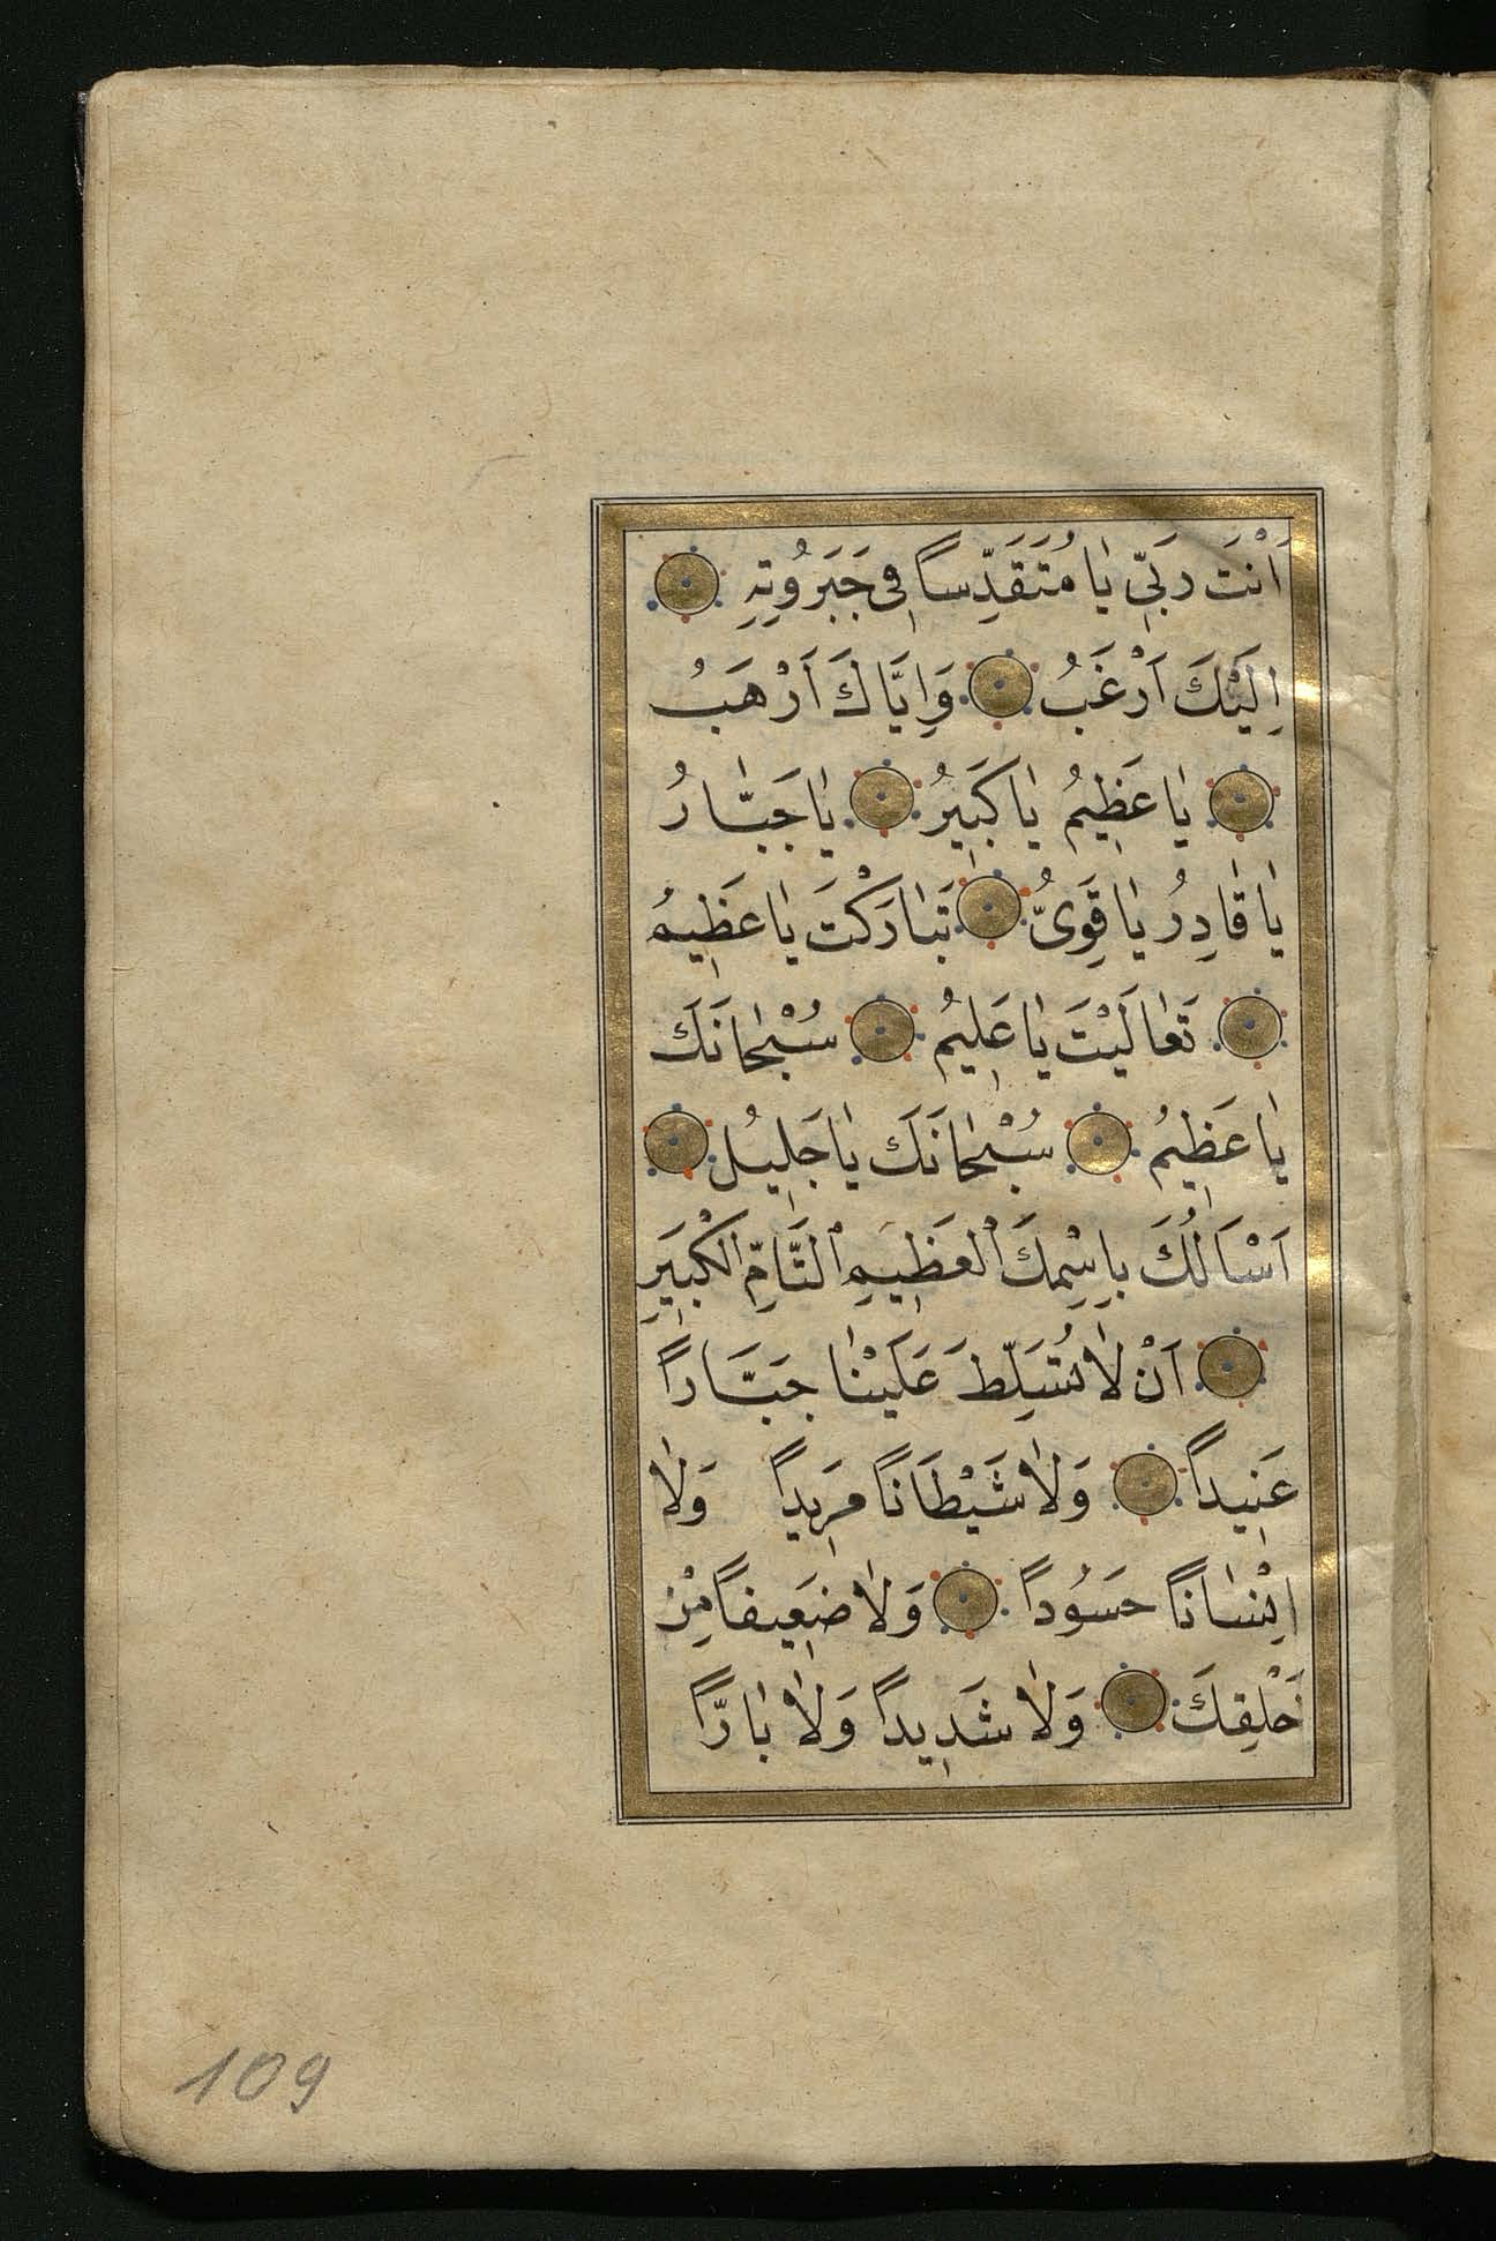 اَنْتَ رَبّي يٰا مُتَقَدِّساً فى جَبَرُوتِهِ
اِلَيْكَ اَرْغَبُ وَاِيَّاكَ اَرْهَبُ
يٰا عَظِيمُ يٰا كَبَيرُ يٰا جَبّٰارُ
يٰا قٰادِرُ يٰا قَوِىُّ تَبٰارَكْتَ يٰا عَظِيمُ
تَعٰالَيْتَ يٰا عَلِيمُ سُبْحٰانَكَ
يٰا عَظِيمُ سُبْحٰانَكَ يٰا جَلِيلُ
اَسْاَلُكَ بِاِسْمِكَ الْعَظِيمِ التَّامِّ الْكَبِيرِ
اَنْ لٰا تُسَلِّطَ عَلَيْنٰا جَبَّاراً
عَنِيداً وَلٰا شَيْطَاناً مَرِيداً وَلٰا
اِنْسٰاناً حَسُوداً وَلٰا ضَعِيفاً مِنْ
خَلْقِكَ وَلٰا شَدِيداً وَلٰا بٰارّاً
109